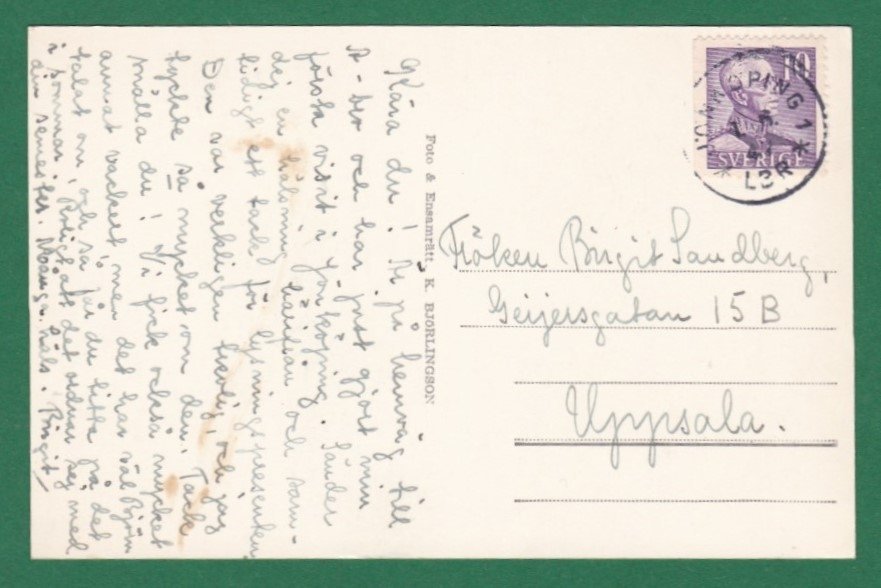 Kära du! Är på hemväg till
A-bo och har just gjort min
första visit i Jönköping. Sänder
dej en hälsning härifrån och sam-
tidigt ett tack för lysningspresenten
Den var verkligen trevlig, och jag
tyckte så mycket om den. Tack
snälla du! Vi fick också mycket
annat vackert men det har väl Björn
talat om, och så får du titta på det
i sommar. Roligt att det ordnar sej med
din semester. Många häls. Birgit
Foto & Ensamrätt K. BJÖRLINGSON
10
SVERIGE
JÖNKÖPING 1
LBR
Fröken Birgit Sandberg,
Geijersgatan 15 B
Uppsala.